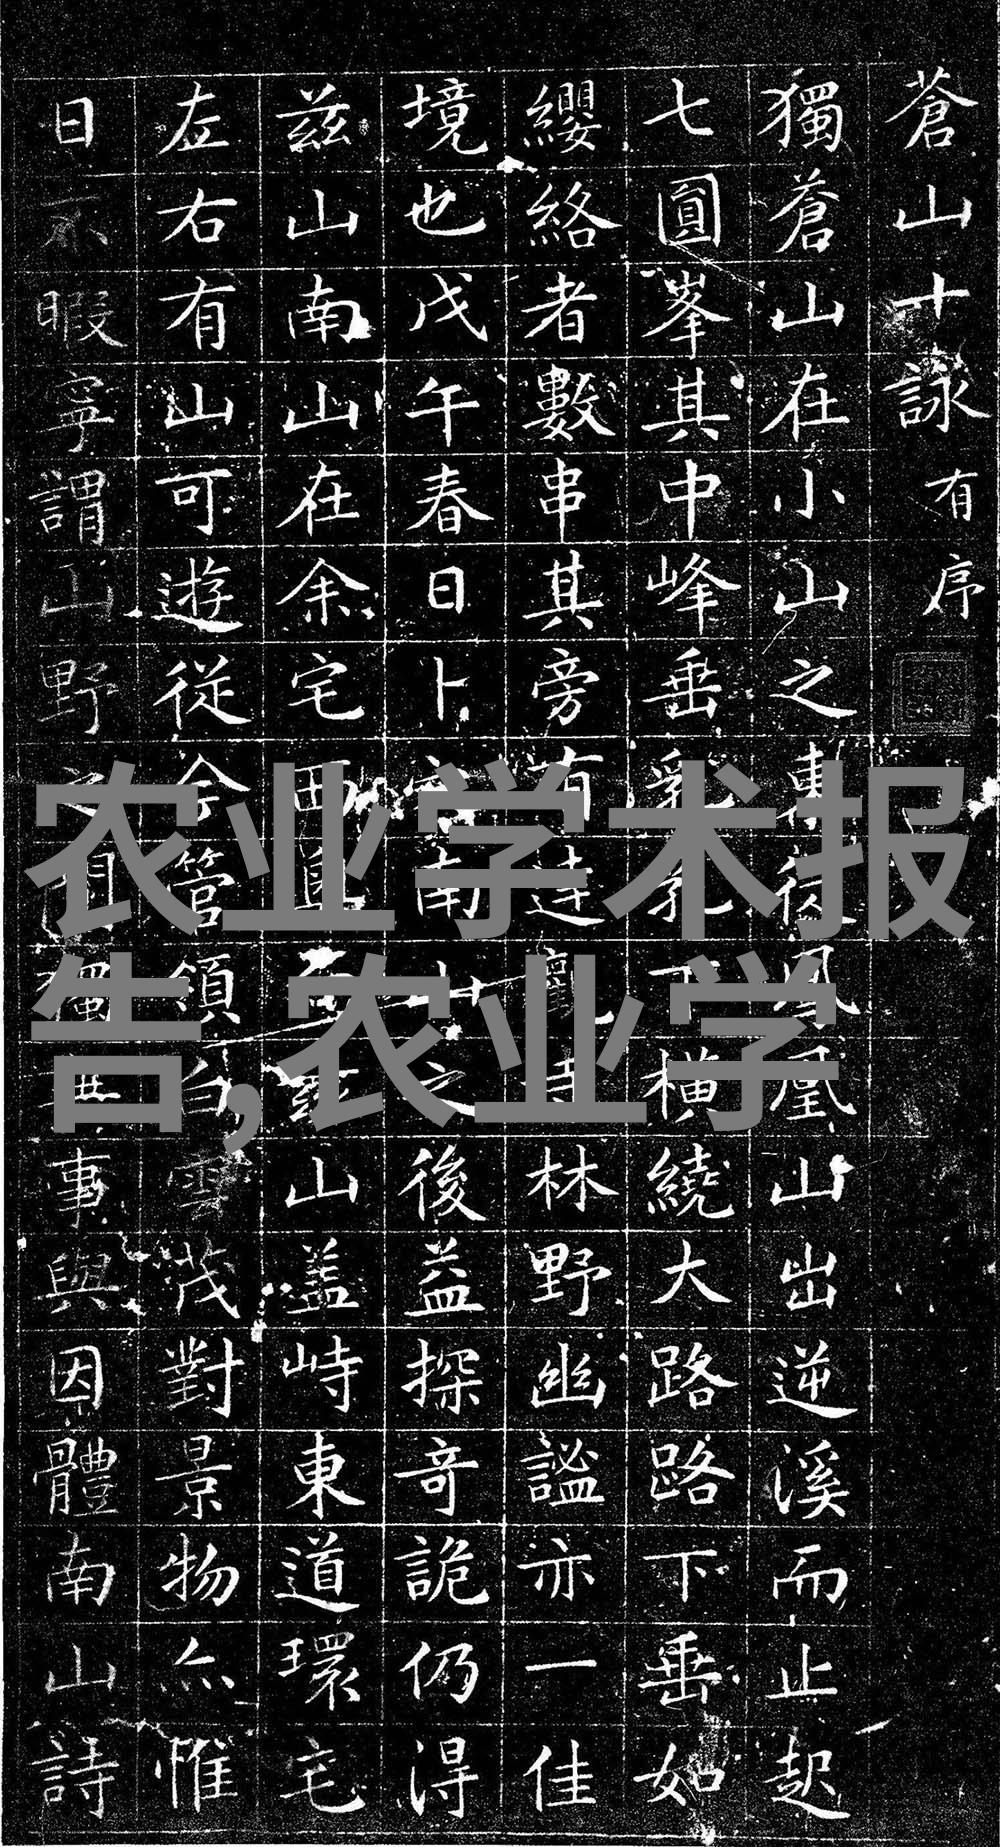 蒼山十詠 有序
獨蒼山在小山之東從鳳凰山出逆溪而止起
七圓峯其中峰垂乳乳下橫繞大路路下垂如
纓絡者數串其旁有寺林野幽謐亦一佳
境也戊午春日卜南山之後益探奇詭仍得
茲山南山在余宅西山盖峙東道環宅
左右有山可遊從余管領白雲茂對景物亦惟
日不暇寧謂山野之間獨無事與因體南山詩
农业学术报
告,农业学